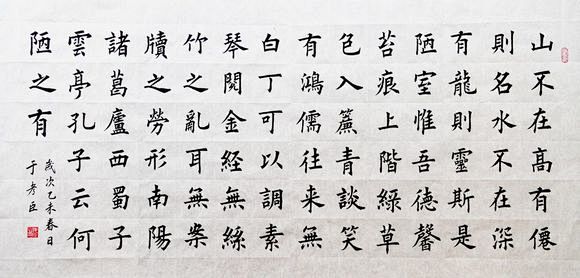 山不在高有僊
則名水不在深
有龍則靈斯是
陋室惟吾德馨
苔痕上階綠草
色入簾青談笑
有鴻儒往來無
白丁可以調素
琴閱金經無絲
竹之亂耳無案
牘之勞形南陽
諸葛廬西蜀子
雲亭孔子云何
陋之有
歲次乙未春日